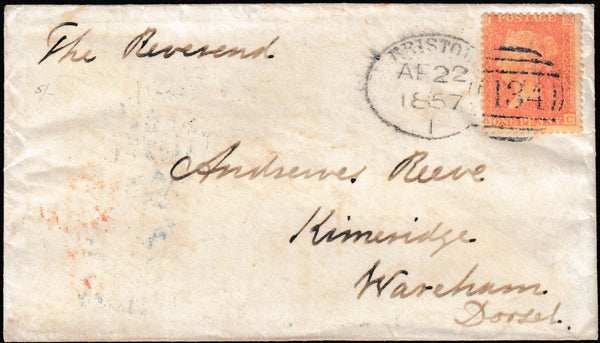 The Reverend
5/-
Andrewes Reeve
Kimeridge
Wareham
Dorset.
BRISTOL
AP 22
1857
1
134
POSTAGE
ONE PENNY